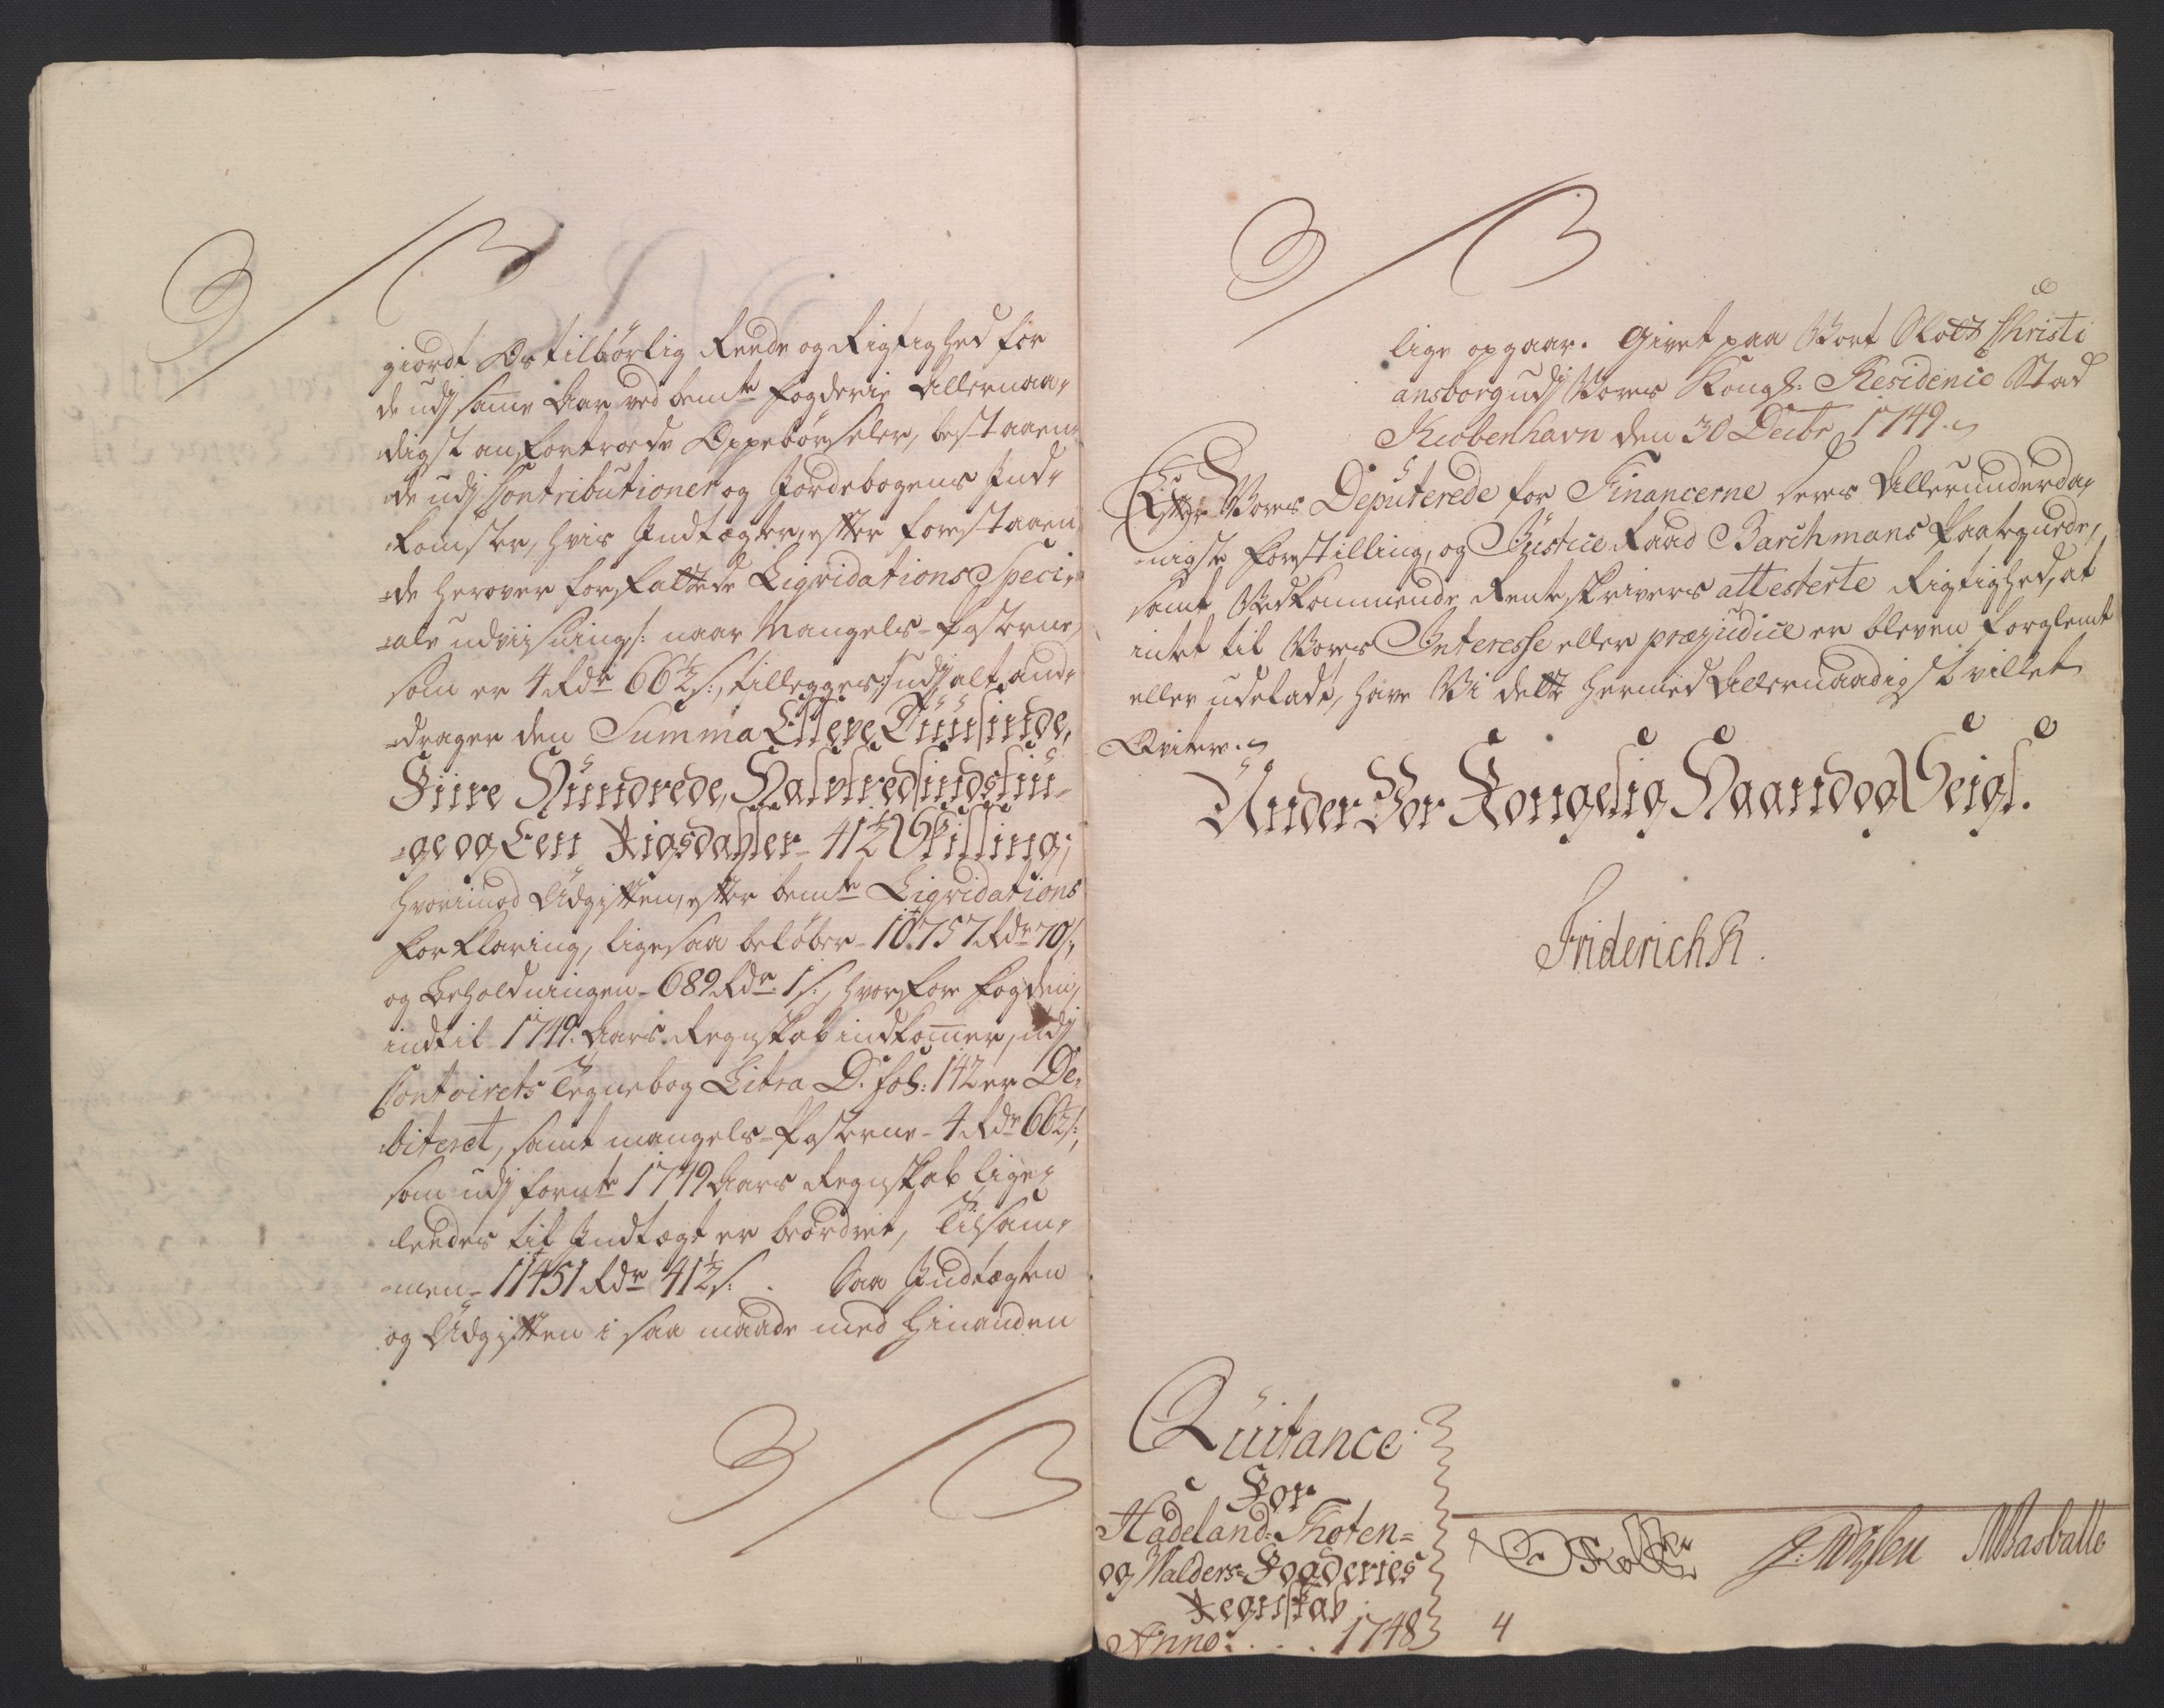 giordt Os tilbörlig Reede og Rigtighed for
de udj samme Aar ved bemte Fogderie Allernaa-
digst anfortroede Oppebörseler, bestaaen-
de udj Contributioner og Jordebogens Ind-
komster, hvis Indtægter, efter forestaaen-
de herover forfattede Liqvidations Speci-
ale udviisning: naar Mangels-Posterne,
som er 4 Rdr 66½ s:, tillegges: udj alt and-
drager den Summa Elleve Tuusinde,
Fiire Hundrede, Halvtredsindstiu-
ge og Een Rigsdahler 41½ Skilling;
hvorimod Udgiften, efter bemte Liqvidations
Forklaring, ligesaa belöber 10757 Rdr 70 s,
og Beholdningen 689 Rdr: 1 s:, hvorfore Fogden,
indtil 1749. Aars Regnskab indkommer, udj
Contoirets Tegnebog Litra D. fol: 142 er De-
biteret, samt mangels-Posterne 4 Rdr 66½ s:,
som udj fornte 1749 Aars Regnskab lige-
leedes til Indtægt er beordret, Tilsam-
men 11451 Rdr 41½ s: . Saa Indtægten
og Udgiften i saa maade med hinanden
lige opgaar. Givet paa Vort Slott Christi
ansborg udj Vores Kongl: Residence Stad
Kiobenhavn den 30 Decbr 1749.
Efter Vores Deputerede for Financerne deres Allerunderda-
nigste Forestilling, og Justice Raad Barchmans Paategnede,
samt Vedkommende Renteskrivers attesterte Rigtighed, at
intet til Vores Interesse eller præjudice er bleven forglemt
eller udeladt, have Vi dette hermed Allernaadigst villet
Qvitere.
Under Vor Kongelig Haand og Seigl.
Friderich R.
Quitance
For
Hadeland- Thoten-
og Walders- Fogderies
Regnskab
Anno: . . . 1748
4